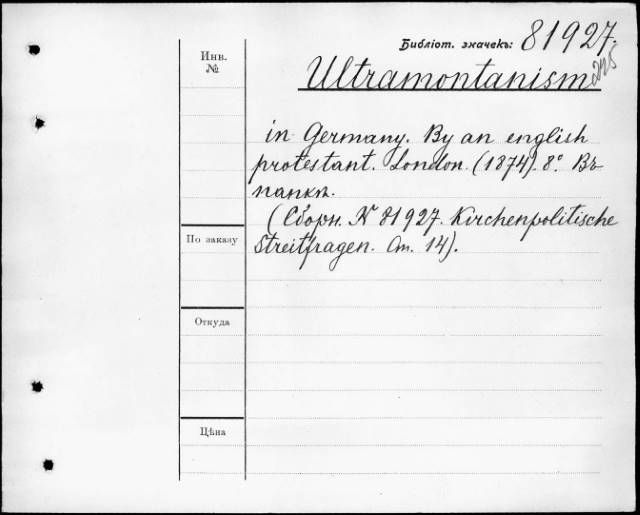 Библіот. значекъ: 81927.
Инв.
№
Ultramontanism
in Germany. By an english
protestant. London. (1874). 8°. Въ
папкѣ.
(Сборн. № 81927. Kirchenpolitische
Streitfragen. Ст. 14).
По заказу
Откуда
Цѣна